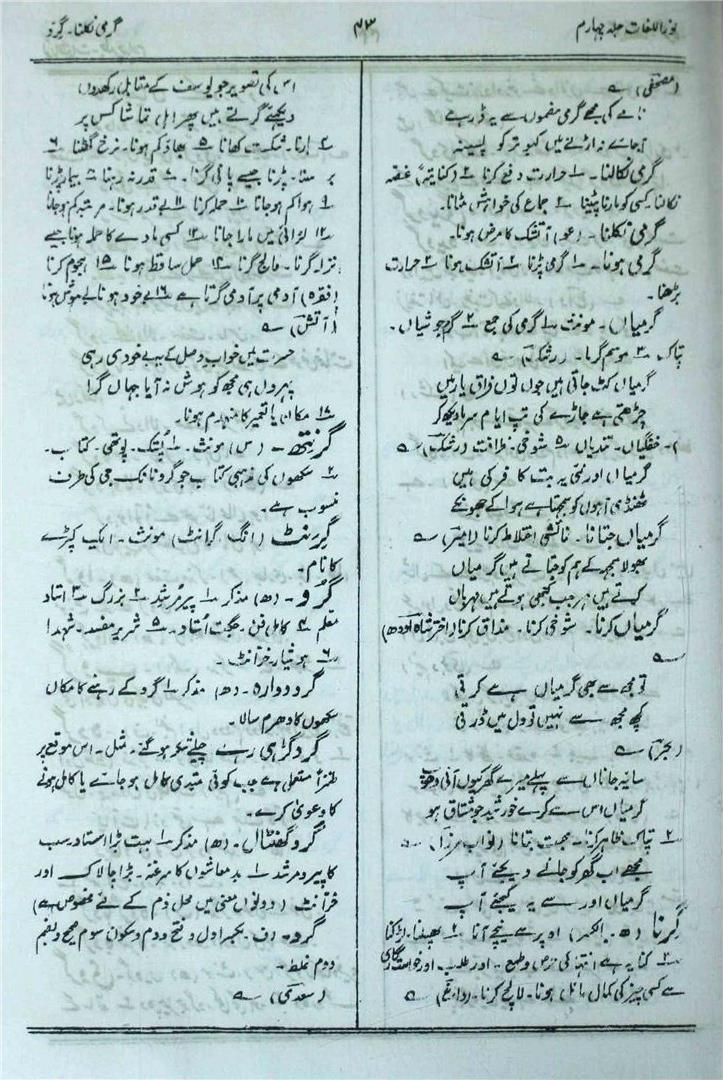 نور اللغات جلد چہارم
۴۳
گرمی نکلنا۔ گرو
(مصحفی) ؎
نامے کی مجھے گرمی مضموں سے یہ ڈر ہے
آجائے نہ اڑنے میں کبوتر کو پسینہ
گرمی نکالنا۔ ۱ حرارت دفع کرنا ۲ (کنایۃً) غصہ
نکالنا کسی کو مارنا پیٹنا ۳ جماع کی خواہش مٹانا۔
گرمی نکلنا۔ (عو) آتشک کا مرض ہونا۔
گرمی ہونا۔ ۱ گرمی پڑنا ۲ آتشک ہونا ۳ حرارت
بڑھنا۔
گرمیاں۔ مونث ۱ گرمی کی جمع ۲ گرمجوشیاں۔
تپاک ۳ موسم گرما۔ (رشک) ؎
گرمیاں کٹ جاتی ہیں جوں توں فراق یار میں
چڑھتی ہے جاڑے کی تپ ایام سرما دیکھ کر
خفگیاں۔ تندیاں ۵ شوخی۔ ظرافت (رشک) ؎
گرمیاں اور نئی یہ بت کافر کی ہیں
ٹھنڈی آہوں کو سمجھتا ہے ہوا کے جھونکے
گرمیاں جتانا۔ نمائشی اختلاط کرنا (امیر) ؎
بھولا سمجھ کے ہم کو جتاتے ہیں گرمیاں
کہتے ہیں مہر جب کبھی ہوتے ہیں مہرباں
گرمیاں کرنا۔ شوخی کرنا۔ مذاق کرنا (اختر شاہ اودھ)
؎
تو مجھ سے بھی گرمیاں ہے کرتی
کچھ مجھ سے نہیں تو دل میں ڈرتی
(بحر) ؎
سایہ جاناں سے پہلے میرے گھر کیوں آئی دھوپ
گرمیاں اس سے کرے خورشید جو مشتاق ہو
۲ تپاک ظاہر کرنا۔ محبت جتانا (نواب مرزا) ؎
مجھے اب گھر کو جانے دیجئے آپ
گرمیاں اور سے یہ کیجئے آپ
گرنا (ھ۔ بالکسر) اوپر سے نیچے آنا ۲ پھینا۔ لڑکنا
۳ کنایہ ہے انتہا کی حرص و طمع۔ اور طلب۔ اور خواہشگاری
سے کسی چیز کی کمال مائل ہونا۔ لالچ کرنا۔ (داغ) ؎
اس کی تصویر جو یوسف کے مقابل رکھ دوں
دیکھئے گرتے ہیں پھر اہل تماشا کس پر
۴ ہارنا۔ شکست کھانا ۵ بھاؤ کم ہونا۔ نرخ گھٹنا ۶
برسنا۔ پڑنا جیسے پانی گرنا۔ ۷ قدر نہ رہنا ۸ بیمار پڑنا
۹ ہوا کم ہوجانا ۱۰ حملہ کرنا ۱۱ بے قدر ہونا۔ مرتبہ کم ہوجانا
۱۲ لڑائی میں مارا جانا ۱۳ کسی مادے کا حملہ ہونا جیسے
نزلہ گرنا۔ فالج گرنا ۱۴ حمل ساقط ہونا ۱۵ ہجوم کرنا
(فقرہ) آدمی پر آدمی گرتا ہے ۱۶ بے خود ہونا بے ہوش ہونا
(آتش) ؎
حسرت میں خواب وصل کے یہ بے خودی رہی
پہروں ہی مجھ کو ہوش نہ آیا جہاں گرا
۱۷ مکان یا تعمیر کا منہدم ہونا۔
گرنتھ۔ (س) مونث۔ ۱ پستک۔ پوتھی۔ کتاب۔
۲ سکھوں کی مذہبی کتاب جو گرو نانک جی کی طرف
منسوب ہے۔
گرنٹ (انگ۔ گرانٹ) مونث۔ ایک کپڑے
کا نام۔
گرو۔ (ھ) مذکر ۱ پیر مرشد ۲ بزرگ ۳ استاد
معلم ۴ کامل فن۔ جگت استاد۔ ۵ شریر مفسد۔ شہدا
۶ ہوشیار خرانٹ۔
گرودوارہ۔ (ھ) مذکر ۱ گرو کے رہنے کا مکان
سکھوں کا دھرم سالا۔
گرو گڑ ہی رہے چیلے شکر ہوگئے۔ مثل۔ اس موقع پر
طنزاً مستعمل ہے جب کوئی مبتدی کامل ہوجائے یا کامل ہونے
کا دعویٰ کرے۔
گرو گھنٹال۔ (ھ) مذکر ۱ بہت بڑا استاد سب
کا پیر و مرشد ۲ بدمعاشوں کا سرغنہ۔ بڑا چالاک اور
خرانٹ (دونوں معنی میں محل ذم کے لئے مخصوص ہے)
گرو۔ (ف۔ بکسر اول و فتح دوم و سکون سوم صحیح و بضم
دوم غلط۔
(سعدی) ؎